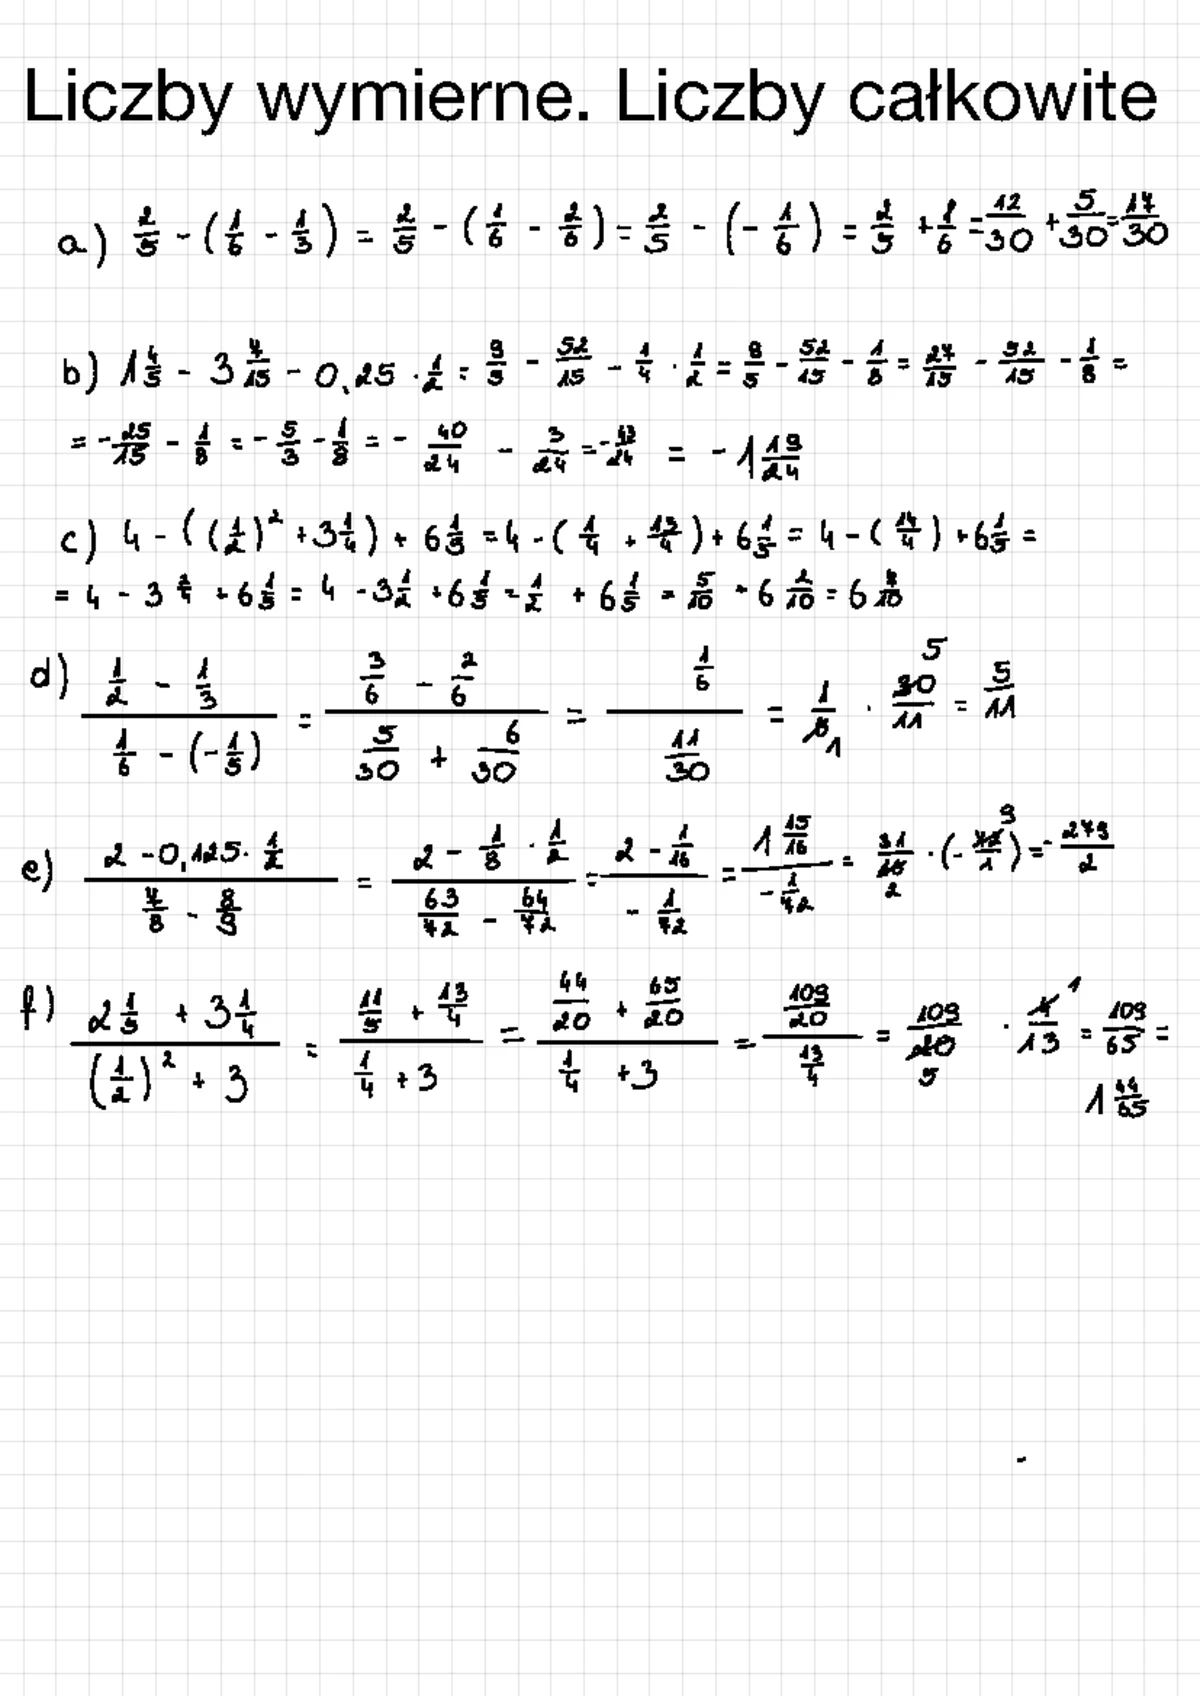 Liczby wymierne. Liczby całkowite
a) 2/5 - (1/6 - 1/3) = 2/5 - (1/6 - 2/6) = 2/5 - (- 1/6) = 2/5 + 1/6 = 12/30 + 5/30 = 17/30
b) 1 4/5 - 3 7/15 - 0,25 · 1/2 = 9/5 - 52/15 - 1/4 · 1/2 = 9/5 - 52/15 - 1/8 = 27/15 - 52/15 - 1/8 =
= - 25/15 - 1/8 = - 5/3 - 1/8 = - 40/24 - 3/24 = - 43/24 = - 1 19/24
c) 4 - ((1/2)² + 3 1/4) + 6 1/5 = 4 - (1/4 + 13/4) + 6 1/5 = 4 - (14/4) + 6 1/5 =
= 4 - 3 2/4 + 6 1/5 = 4 - 3 1/2 + 6 1/5 = 1/2 + 6 1/5 = 5/10 + 6 2/10 = 6 7/10
d) (1/2 - 1/3)/(1/6 - (- 1/5)) = (3/6 - 2/6)/(5/30 + 6/30) = (1/6)/(11/30) = 1/6 1 · 30/11 5 = 5/11
e) (2 - 0,125 · 1/2)/(7/8 - 8/9) = (2 - 1/8 · 1/2)/(63/72 - 64/72) = (2 - 1/16)/(- 1/72) = (1 15/16)/(- 1/72) = 31/16 2 · (- 72/1 9) = - 279/2
f) (2 1/5 + 3 1/4)/((1/2)² + 3) = (11/5 + 13/4)/(1/4 + 3) = (44/20 + 65/20)/(1/4 + 3) = (109/20)/(13/4) = 109/20 5 · 4/13 1 = 109/65 =
1 44/65